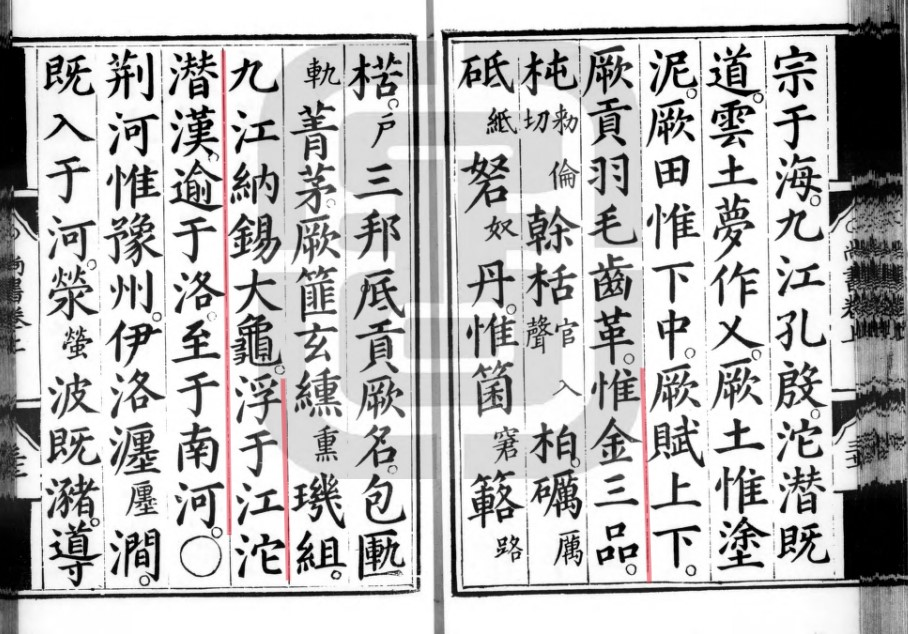 宗于海。九江孔殷。沱潜既
道。雲土夢作乂。厥土惟塗
泥。厥田惟下中。厥賦上下。
厥貢羽毛齒革。惟金三品。
杶勑倫切榦栝官入聲柏。礪厲
砥紙砮奴丹。惟箘窘簵路
楛。戶三邦厎貢厥名。包匭
軌菁茅。厥篚玄纁熏璣組。
九江納錫大龜。浮于江沱
潜漢。逾于洛。至于南河。〇
荆河惟豫州。伊洛瀍廛澗。
既入于河。滎螢波既瀦。導
尚書卷上